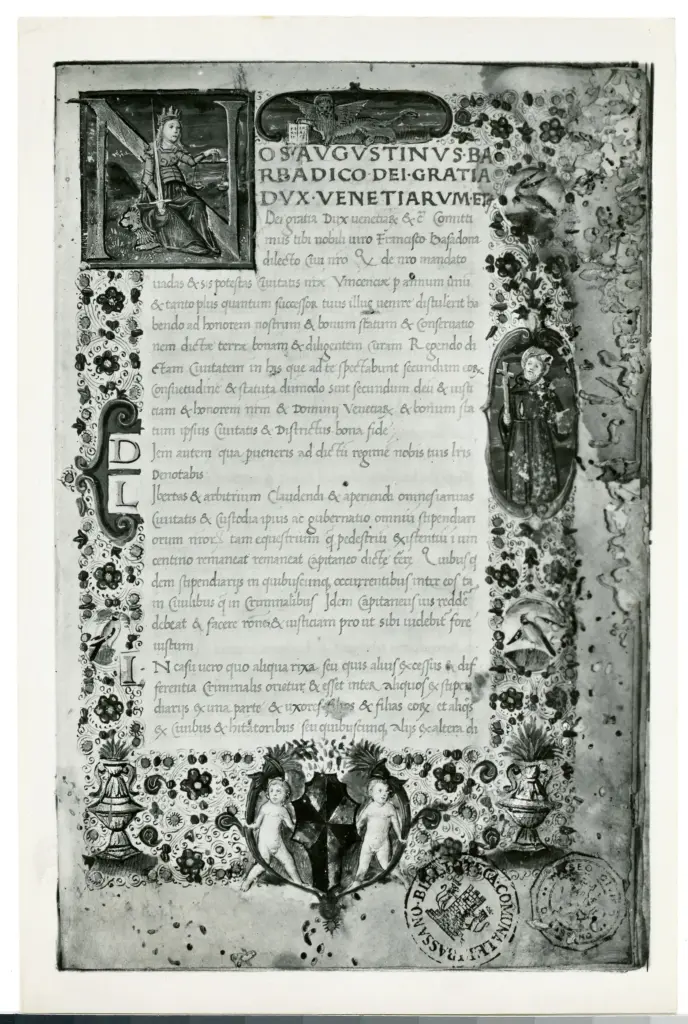 N
OS·AVGVSTINVS·BA
RBADICO·DEI·GRATIA
DVX·VENETIARVM·ET
Dei gratia Dux venetiaꝝ & c̃ Comitti
mus tibi nobili uiro Francisco Basadona
dilecto Ciui nr̃o Q de nr̃o mandato
uadas & sis potestas Ciuitatis nr̃æ Vincenciæ p annum unũ
& tanto plus quantum successor tuus illuc uenire distulerit ha
bendo ad honorem nostrum & bonum statum & Conseruatio
nem dictæ terræ bonam & diligentem Curam Regendo di
ctam Ciuitatem in his que ad te spectabunt secundum eoꝝ
Consuetudinẽ & statuta dũmodo sint secundum deũ & iusti
ciam & honorem nr̃m & Dominij Venetiaꝝ & bonum sta
tum ipsius Ciuitatis & Districtus bona fide
D
Iem autem qua pueneris ad dictũ regimẽ nobis tuis lr̃is
Denotabis
L
Ibertas & arbitrium Claudendi & aperiendi omnes ianuas
Ciuitatis & Custodia ipius ac gubernatio omniũ stipendiari
orum nr̃oꝝ tam equestrium q̃ pedestriũ existentiũ i uin
centino remaneat remaneat Capitaneo dictæ terræ Quibus q
dem stipendiarijs in quibuscunq, occurrentibus inter eos ta
in Ciuilibus q̃ in Criminalibus Idem Capitaneus ius reddẽ
debeat & facere rõnẽ & iusticiam prout sibi uidebit fore
iustum
I
N casu uero quo aliqua rixa seu quis alius excessus & dif
ferentia Criminalis oriet & esset inter aliquos ex stipen
diarijs ex una parte & uxores filios & filias eoꝝ et aliqs
ex Ciuibus & hitãtoribus seu quibuscunq, alijs ex altera di
BIBLIOTECA·COMUNALE DI BASSANO
MUSEO